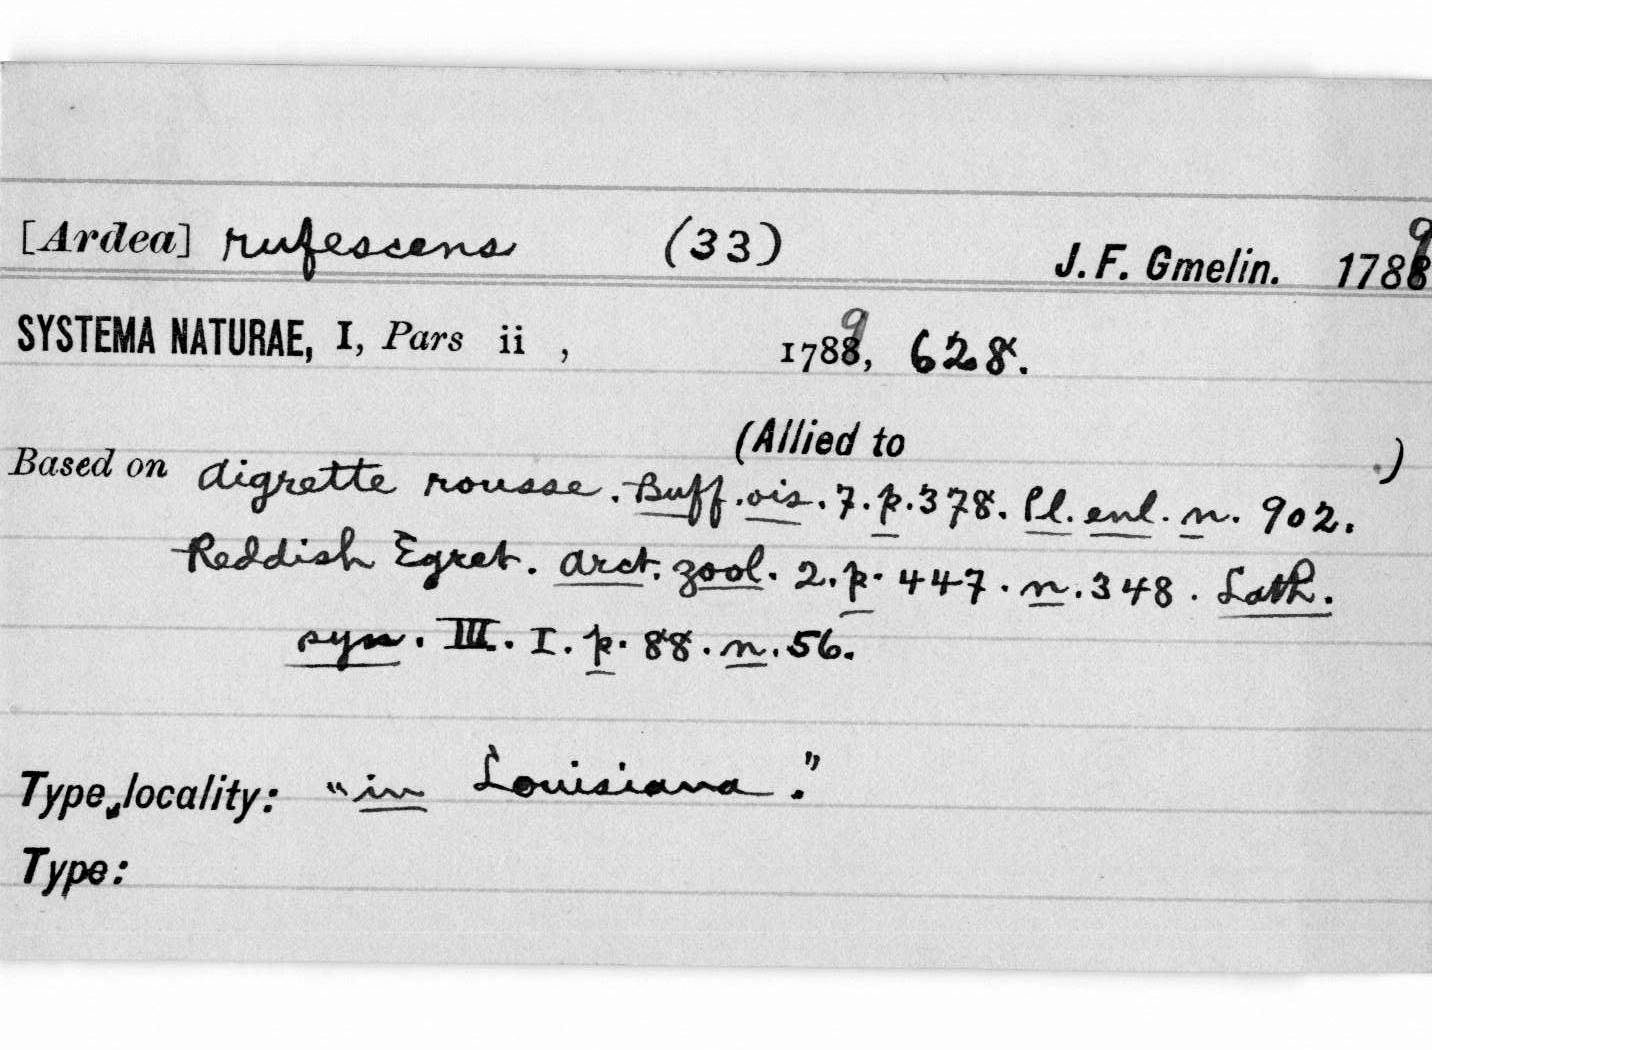 [Ardea] rufescens (33) J. F. Gmelin. 1789
SYSTEMA NATURAE, I, Pars ii , 1789, 628.
(Allied to .)
Based on Aigrette rousse. Buff. ois. 7. p. 378. Pl. enl. n. 902.
Reddish Egret. Arct. zool. 2. p. 447. n. 348. Lath.
syn. III. I. p. 88. n. 56.
Type locality: "in Louisiana."
Type: